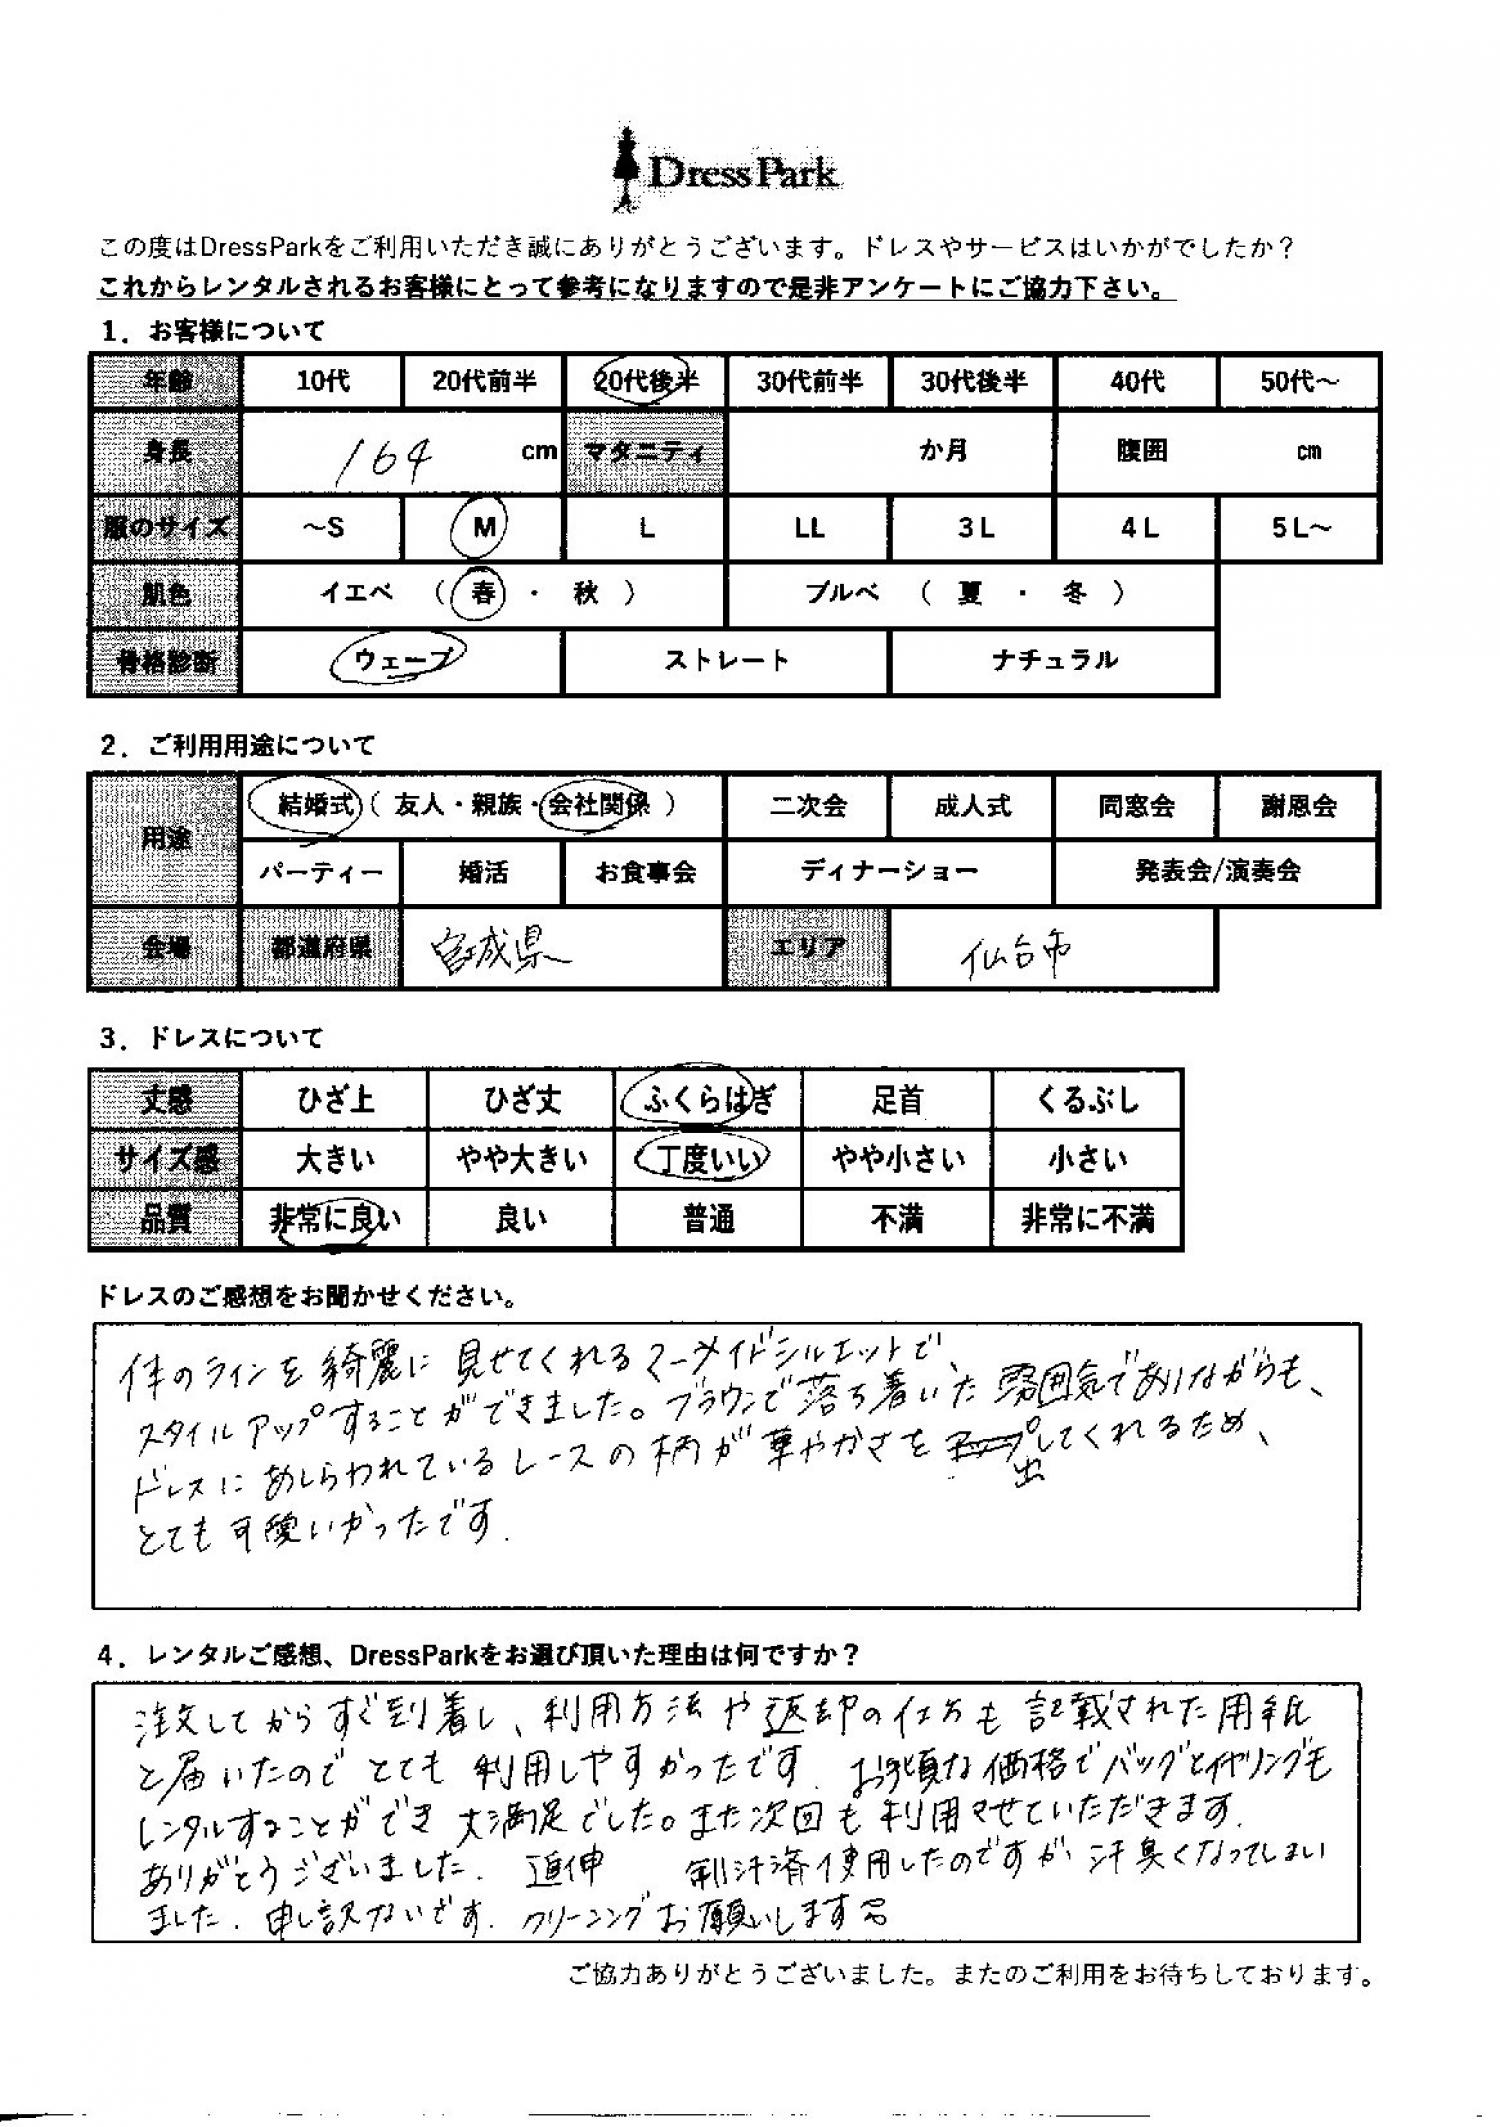 DressPark
この度はDressParkをご利用いただき誠にありがとうございます。ドレスやサービスはいかがでしたか?
これからレンタルされるお客様にとって参考になりますので是非アンケートにご協力下さい。
1．お客様について
年齢 10代 20代前半 20代後半 30代前半 30代後半 40代 50代～
身長 164 cm マタニティ か月 腹囲 cm
服のサイズ ～S M L LL 3L 4L 5L～
肌色 イエベ （ 春 ・ 秋 ） ブルベ （ 夏 ・ 冬 ）
骨格診断 ウェーブ ストレート ナチュラル
2．ご利用用途について
用途 結婚式（ 友人・親族・会社関係 ） 二次会 成人式 同窓会 謝恩会
パーティー 婚活 お食事会 ディナーショー 発表会/演奏会
会場 都道府県 宮城県 エリア 仙台市
3．ドレスについて
丈感 ひざ上 ひざ丈 ふくらはぎ 足首 くるぶし
サイズ感 大きい やや大きい 丁度いい やや小さい 小さい
品質 非常に良い 良い 普通 不満 非常に不満
ドレスのご感想をお聞かせください。
体のラインを綺麗に見せてくれるマーメイドシルエットで、
スタイルアップすることができました。ブラウンで落ち着いた雰囲気でありながらも、
ドレスにあしらわれているレースの柄が華やかさを出してくれるため、
とても可愛いかったです.
4．レンタルご感想、DressParkをお選び頂いた理由は何ですか？
注文してからすぐ到着し、利用方法や返却の仕方も記載された用紙
と届いたのでとても利用しやすかったです. お手頃な価格でバッグとイヤリングも
レンタルすることができ大満足でした。また次回も利用させていただきます.
ありがとうございました. 追伸 制汗済使用したのですが、汗臭くなってしまい
ました. 申し訳ないです. クリーニングお願いします
ご協力ありがとうございました。またのご利用をお待ちしております。